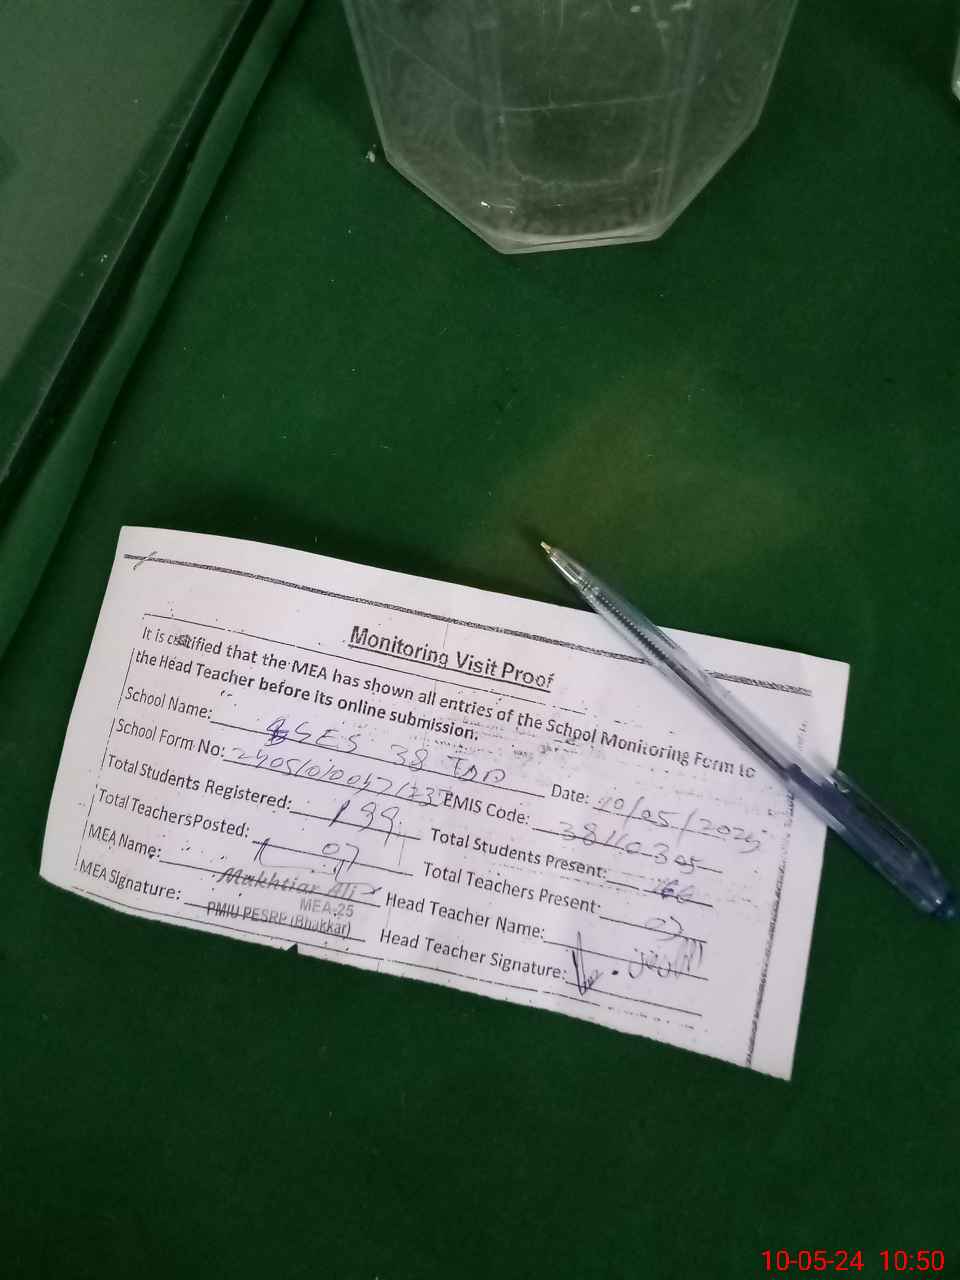 Monitoring Visit Proof
It is certified that the MEA has shown all entries of the School Monitoring Form to
the Head Teacher before its online submission.
School Name: GSES 38 TDA Date: 10/05/2024
School Form No: EMIS Code: 38110305
Total Students Registered: 199 Total Students Present: 166
Total Teachers Posted: 07 Total Teachers Present: 07
MEA Name: Mukhtiar Ali Head Teacher Name:
MEA-25
MEA Signature: PMIU PESRP (Bhakkar) Head Teacher Signature:
10-05-24 10:50